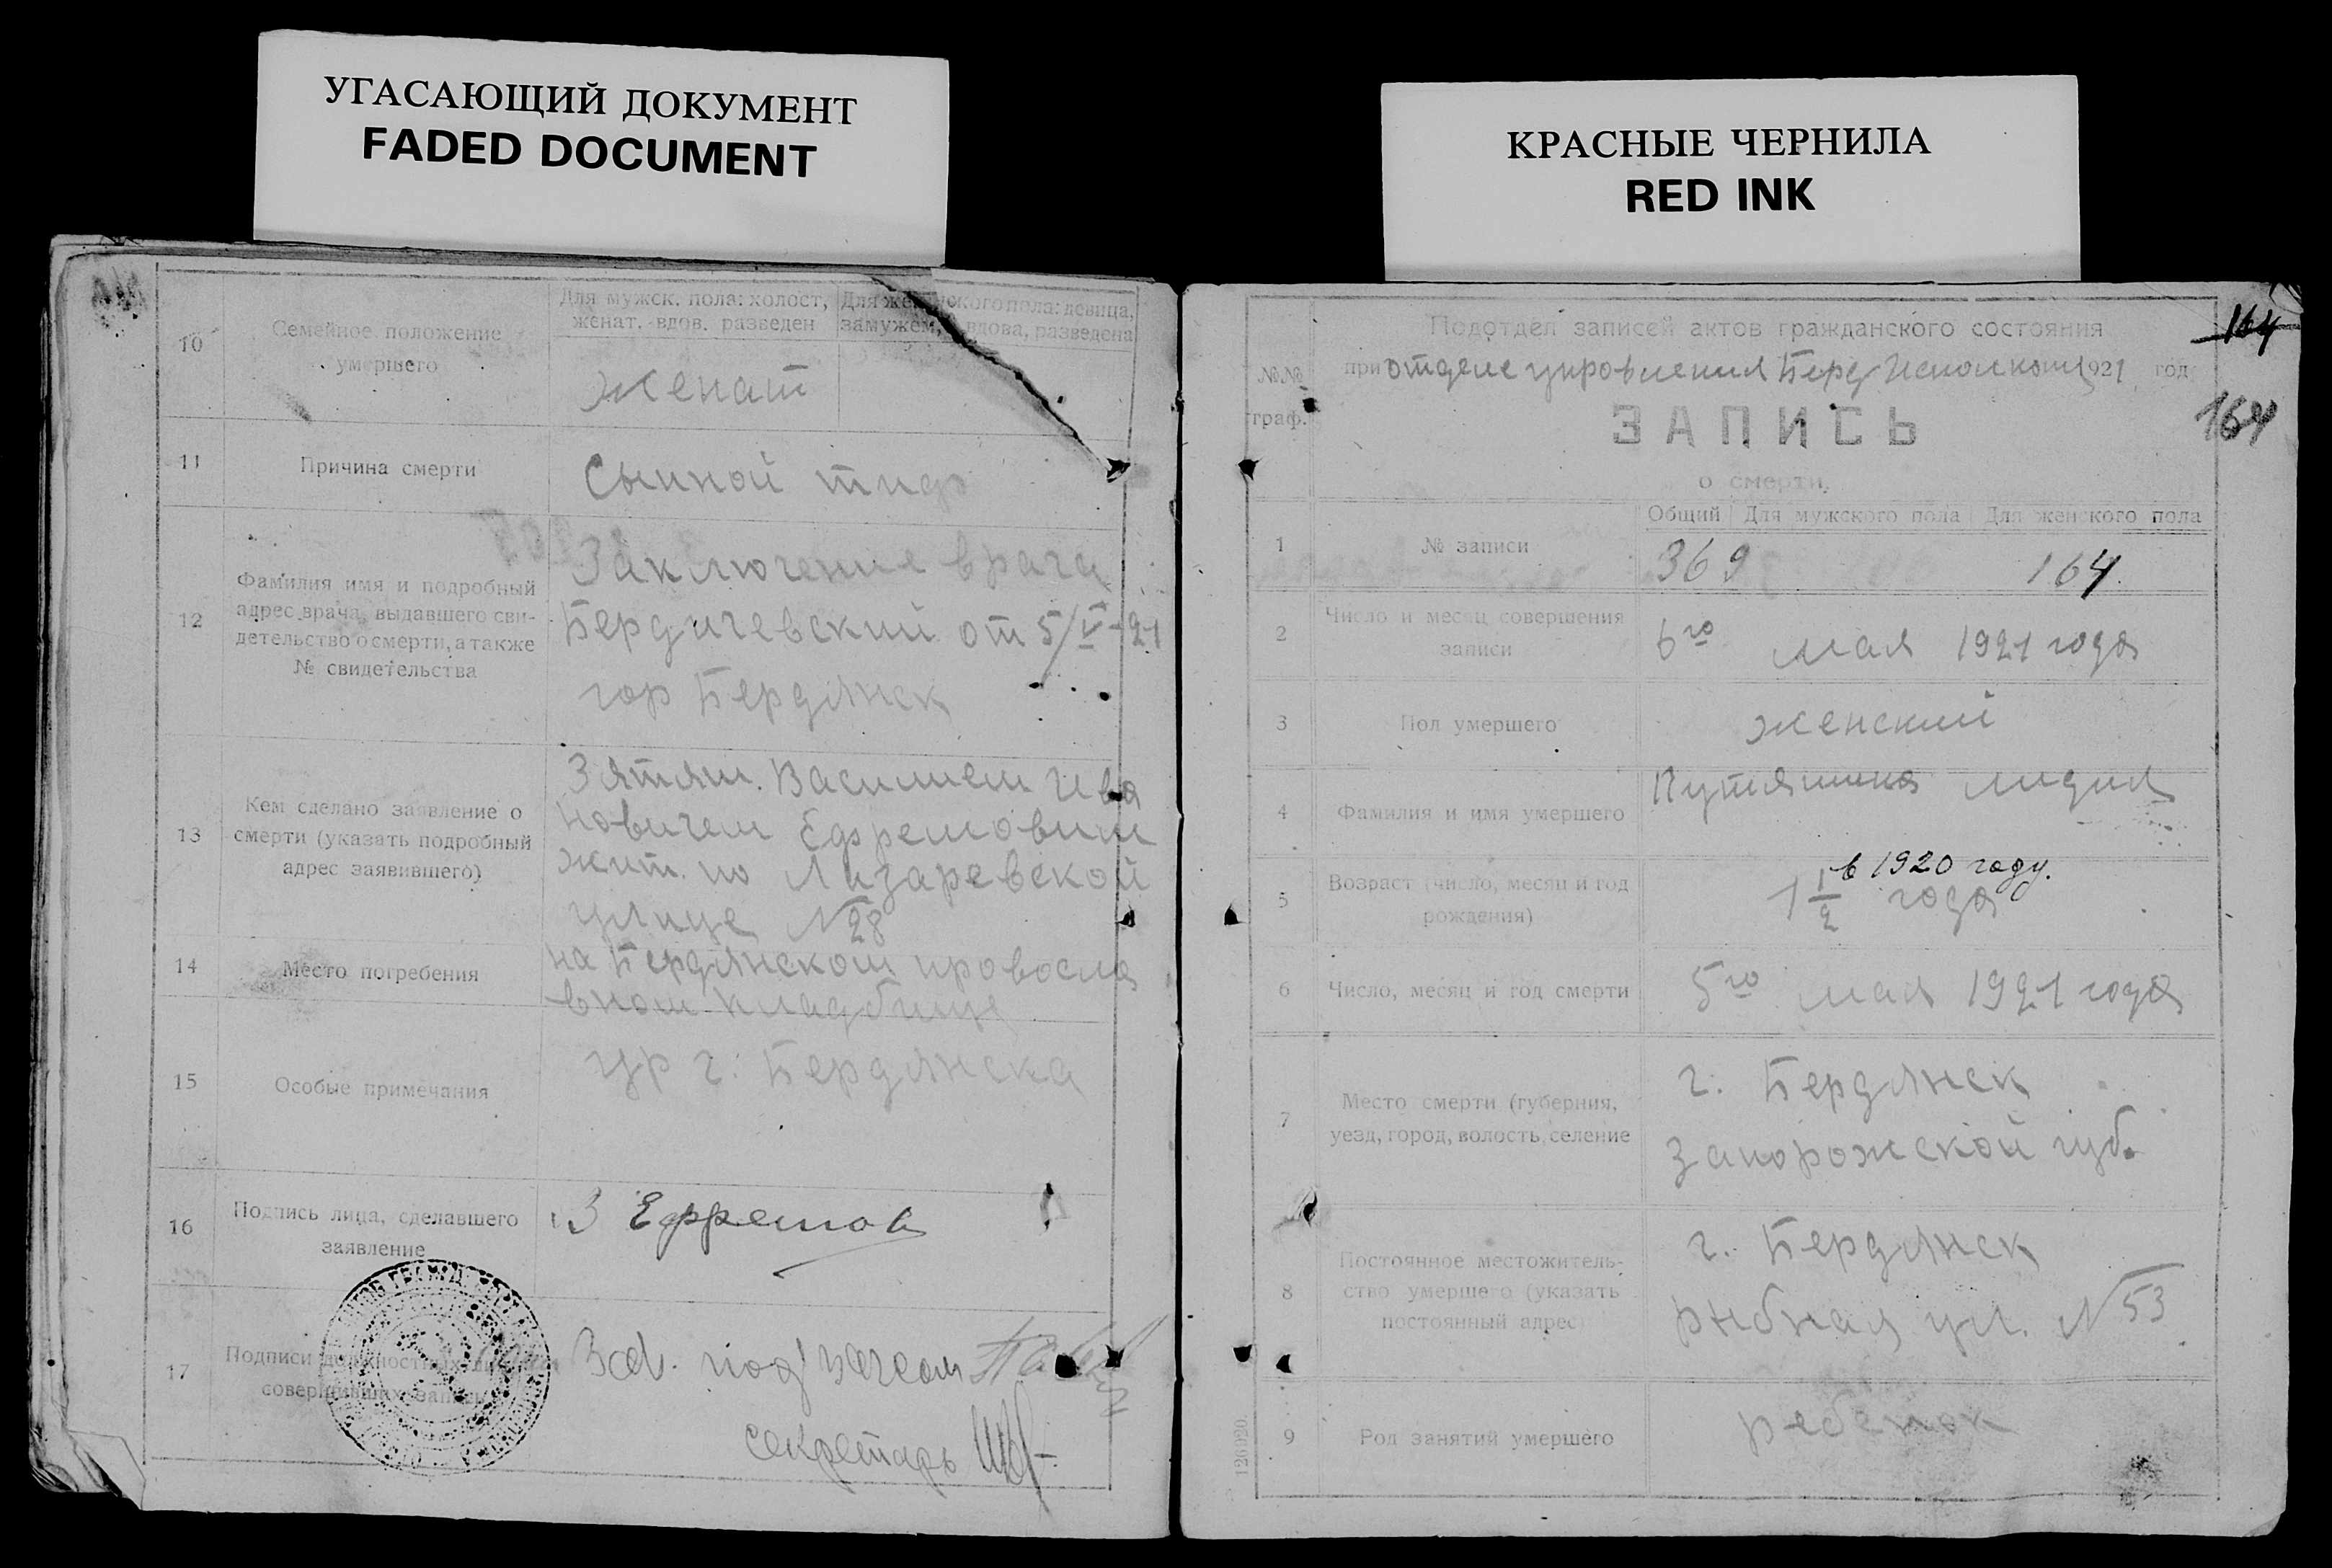 УГАСАЮЩИЙ ДОКУМЕНТ
FADED DOCUMENT
КРАСНЫЕ ЧЕРНИЛА
RED INK
10
Семейное положение
умершего
Для мужск. пола: холост,
женат. вдов. разведен
Для женского пола: девица,
замужем, вдова, разведена
женат
11
Причина смерти
Сыпной тиф
12
Фамилия имя и подробный
адрес врача, выдавшего сви-
детельство о смерти, а также
№ свидетельства
Заключение врача
Бердичевский от 5/V-21
гор Бердянск
13
Кем сделано заявление о
смерти (указать подробный
адрес заявившего)
Зятям. Василием Ива
новичем Ефремовим
жит. по Лизаревской
улице №28
14
Место погребения
на Бердянском провосла
вном кладбище
15
Особые примечания
ур г. Бердянска
16
Подпись лица, сделавшего
заявление
В Ефремов
17
Подписи должностных лиц
совершивших запись
Зав. под
секретарь
164
№№
граф.
Подотдел записей актов гражданского состояния
при отделе управления Берд Исполкома 1921 год
164
ЗАПИСЬ
о смерти,
Общий Для мужского пола Для женского пола
1
№ записи
369 164.
2
Число и месяц совершения
записи
6го мая 1921 года
3
Пол умершего
женский
4
Фамилия и имя умершего
Лидия
5
Возраст (число, месяц и год
рождения)
в 1920 году.
1 1/2 года
6
Число, месяц и год смерти
5го мая 1921 года
7
Место смерти (губерния,
уезд, город, волость, селение
г. Бердянск
Запорожской губ.
8
Постоянное местожитель-
ство умершего (указать
постоянный адрес)
г. Бердянск
рыбная ул. №53
9
Род занятий умершего
ребенок
126020.